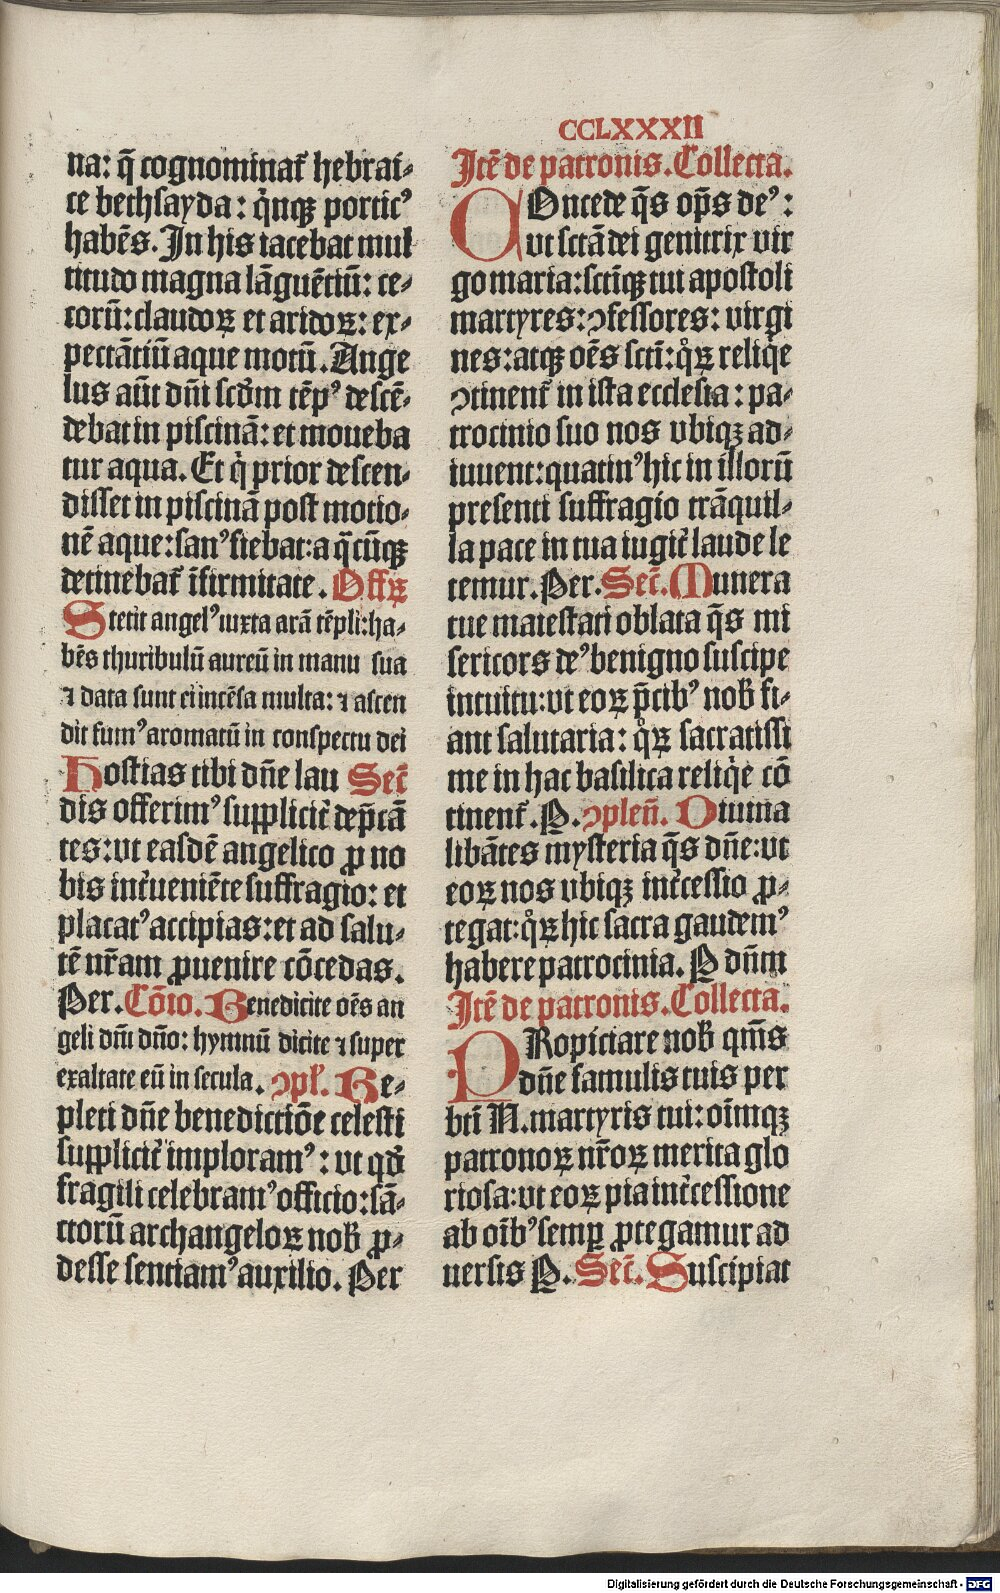 CCLXXXII
na: q̄ cognominat᷑ hebrai⸗
ce bethsayda: q̇nqꝫ portic⁹
habēs. In his iacebat mul
titudo magna lāguētiū: ce⸗
corū: claudoꝝ et aridoꝝ: ex⸗
pectātiū aque motū. Ange
lus aūt dn̄i scd̄m tēp⁹ descē⸗
debat in piscinā: et moueba
tur aqua. Et q̇ prior descen⸗
disset in piscinā post motio⸗
nē aque: san⁹ fiebat: a q̄cūqꝫ
detinebat᷑ īfirmitate. Offꝝ
Stetit angel⁹ iuxta arā tēpli: ha⸗
bēs thuribulū aureū in manu sua
⁊ data sunt ei incēsa multa: ⁊ ascen
dit fum⁹ aromatū in conspectu dei
Hostias tibi dn̄e lau Sec̄
dis offerim⁹ supplicit᷑ dep̄cā
tes: vt easdē angelico ꝓ no
bis int᷑ueniēte suffragio: et
placat⁹ accipias: et ad salu⸗
tē nr̄am ꝓuenire cōcedas.
Per. Cōio. Benedicite oēs an
geli dn̄i dn̄o: hymnū dicite ⁊ super
exaltate eū in secula. ꝯpl̄. Re⸗
pleti dn̄e benedictiōe celesti
supplicit᷑ imploram⁹: vt qd̄
fragili celebram⁹ officio: sā⸗
ctorū archangeloꝝ nob̄ ꝓ⸗
desse sentiam⁹ auxilio. Per
Itē de patronis. Collecta.
COncede q̄s op̄s de⁹:
vt sctā dei genitrix vir
go maria: sctīqꝫ tui apostoli
martyres: ꝯfessores: virgi
nes: atqꝫ oēs sctī: q̊ꝝ reliq̇e
ꝯtinent᷑ in ista ecclesia: pa⸗
trocinio suo nos vbiqꝫ ad⸗
iuuent: quatin⁹ hic in illorū
presenti suffragio trāquil⸗
la pace in tua iugit᷑ laude le
temur. Per. Sec̄. Munera
tue maiestati oblata q̄s mi
sericors de⁹ benigno suscipe
intuitu: vt eoꝝ p̄cib⁹ nob̄ fi⸗
ant salutaria: q̊ꝝ sacratissi
me in hac basilica reliq̇e cō
tinent᷑. P. ꝯplen̄. Diuina
libātes mysteria q̄s dn̄e: vt
eoꝝ nos vbiqꝫ int᷑cessio ꝓ⸗
tegat: q̊ꝝ hic sacra gaudem⁹
habere patrocinia. P dn̄m
Itē de patronis. Collecta.
PRopiciare nob̄ qm̄s
dn̄e famulis tuis per
bt̄i N. martyris tui: oīmqꝫ
patronoꝝ nr̄oꝝ merita glo
riosa: vt eoꝝ pia int᷑cessione
ab oīb⁹ semꝑ ꝓtegamur ad
uersis P. Sec̄. Suscipiat
Digitalisierung gefördert durch die Deutsche Forschungsgemeinschaft - DFG